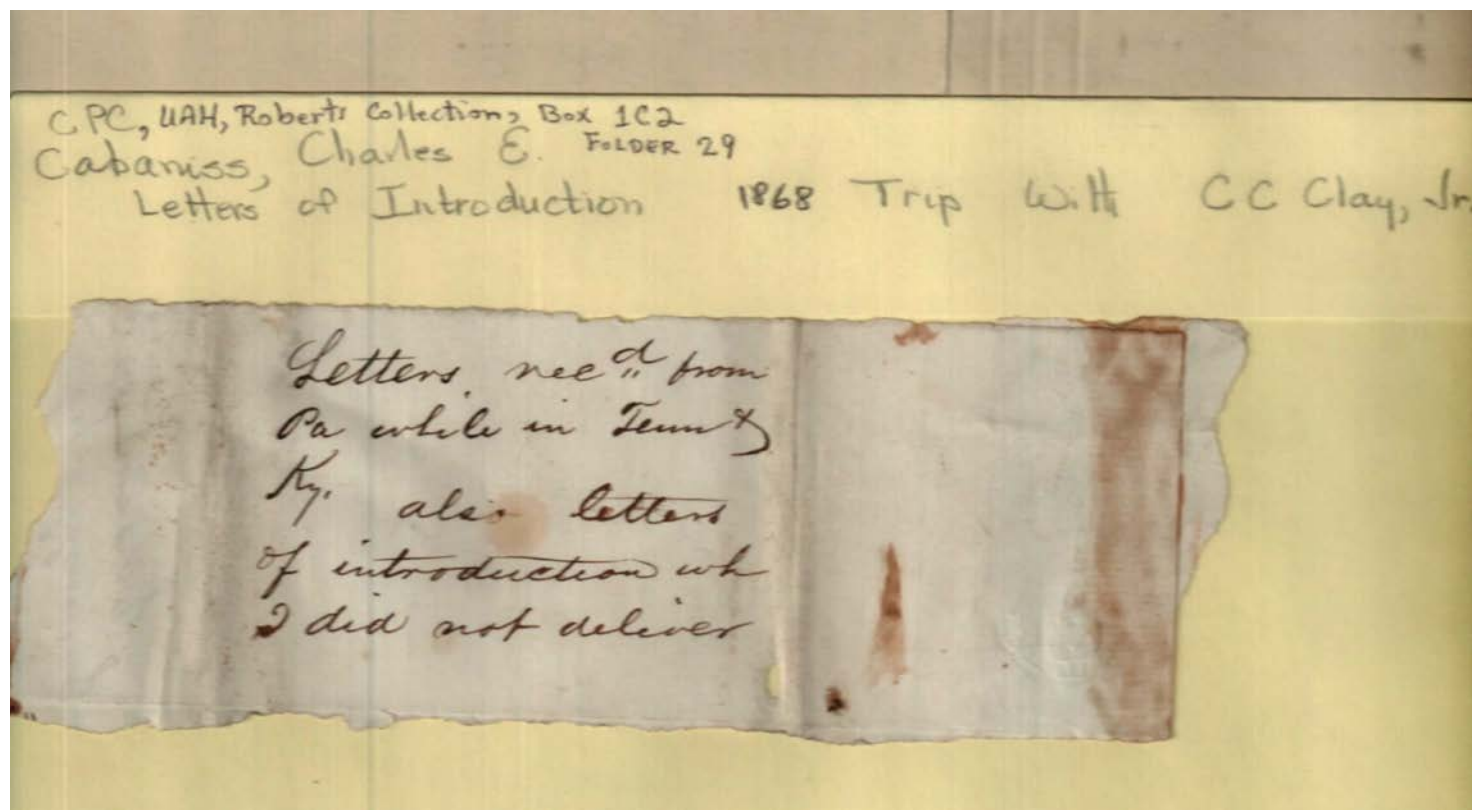 CPC, UAH, Roberts Collection, Box 1C2
FOLDER 29
Cabaniss, Charles E.
Letters of Introduction 1868 Trip With C C Clay, Jr.
Letters rec'd from
Pa while in Tenn &
Ky. also letters
of introduction wh
I did not deliver